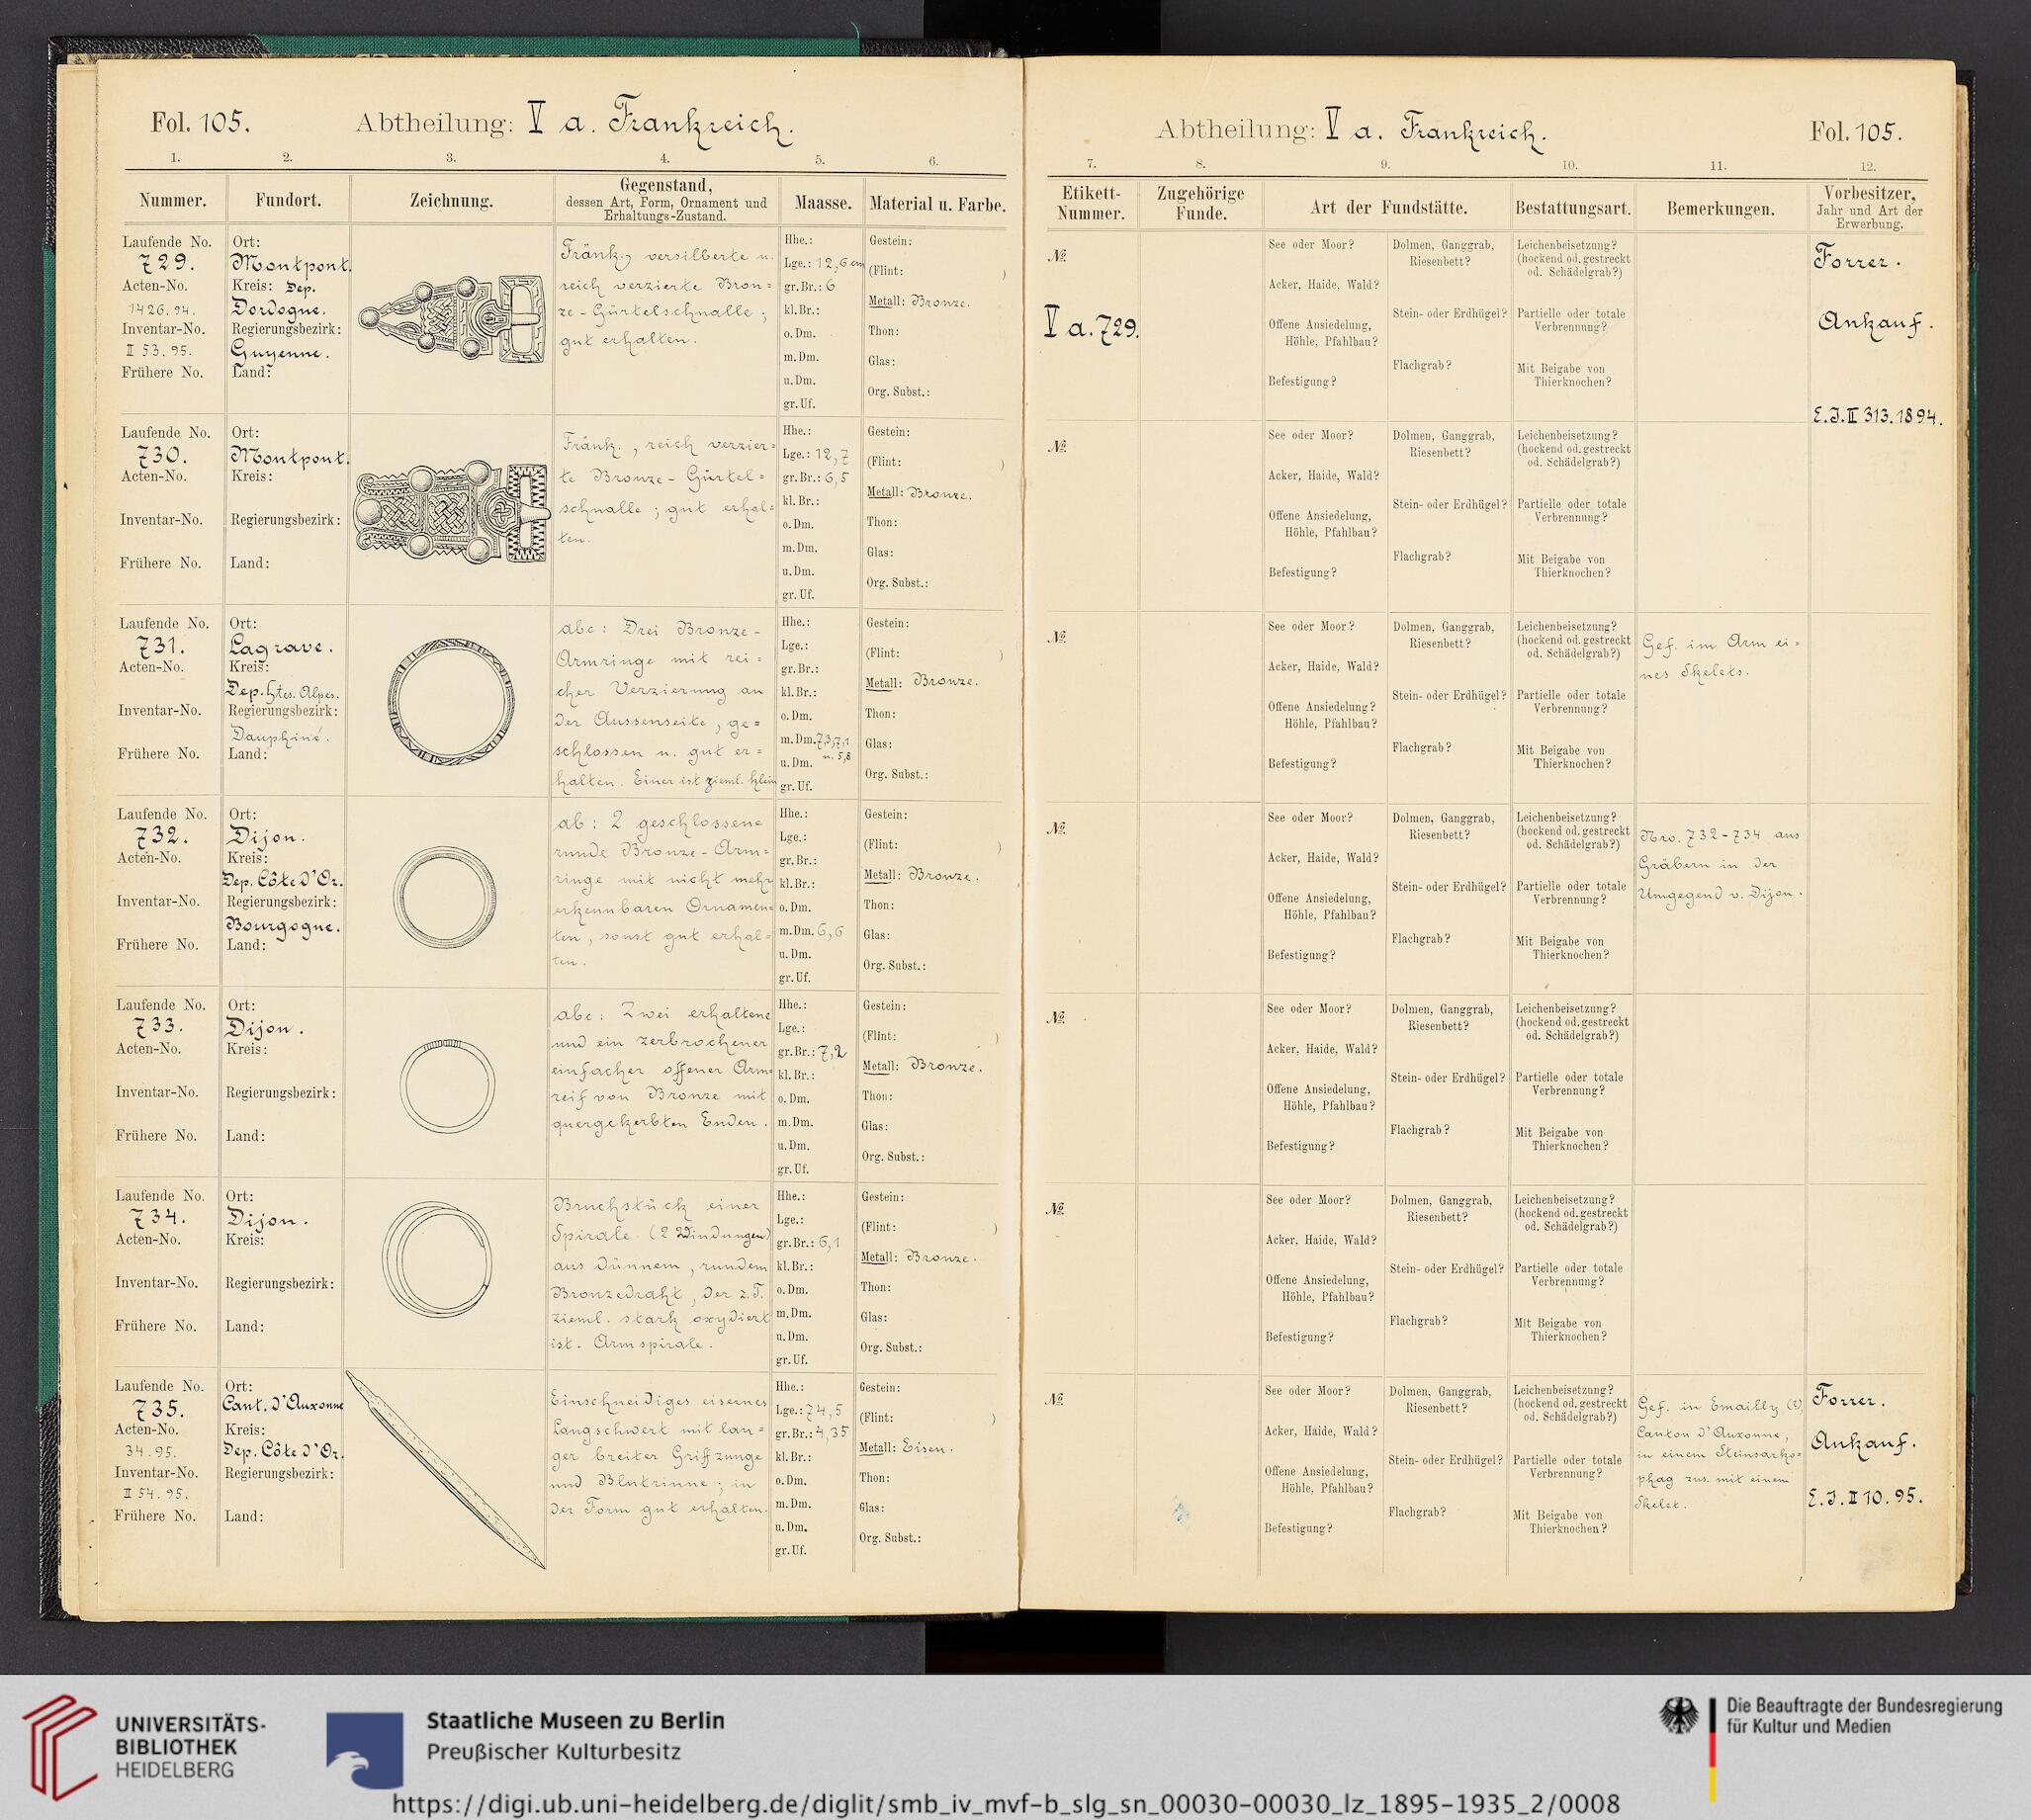 Fol. 105.
Abtheilung: V a. Frankreich.
1. 2. 3. 4. 5. 6.
Nummer. Fundort. Zeichnung. Gegenstand, dessen Art, Form, Ornament und Erhaltungs-Zustand. Maasse. Material u. Farbe.
Laufende No.
729.
Acten-No.
1426.94.
Inventar-No.
II 53.95.
Frühere No.
Ort:
Montpont.
Kreis: Dep.
Dordogne.
Regierungsbezirk:
Guyenne.
Land:
Fränk., versilberte u.
reich verzierte Bron=
ze-Gürtelschnalle;
gut erhalten.
Hhe.:
Lge.: 12,6 cm
gr. Br.: 6
kl. Br.:
o. Dm.
m. Dm.
u. Dm.
gr. Uf.
Gestein:
(Flint: )
Metall: Bronze.
Thon:
Glas:
Org. Subst.:
Laufende No.
730.
Acten-No.
Inventar-No.
Frühere No.
Ort:
Montpont.
Kreis:
Regierungsbezirk:
Land:
Fränk., reich verzier=
te Bronze-Gürtel=
schnalle; gut erhal=
ten.
Hhe.:
Lge.: 12,7
gr. Br.: 6,5
kl. Br.:
o. Dm.
m. Dm.
u. Dm.
gr. Uf.
Gestein:
(Flint: )
Metall: Bronze.
Thon:
Glas:
Org. Subst.:
Laufende No.
731.
Acten-No.
Inventar-No.
Frühere No.
Ort:
Lagrave.
Kreis:
Dep. Htes. Alpes.
Regierungsbezirk:
Dauphiné.
Land:
abc: Drei Bronze-
Armringe mit rei=
cher Verzierung an
der Aussenseite, ge=
schlossen u. gut er=
halten. Einer ist zieml. klein
Hhe.:
Lge.:
gr. Br.:
kl. Br.:
o. Dm.
m. Dm. 7,3, 7,1
u. 5,8
u. Dm.
gr. Uf.
Gestein:
(Flint: )
Metall: Bronze.
Thon:
Glas:
Org. Subst.:
Laufende No.
732.
Acten-No.
Inventar-No.
Frühere No.
Ort:
Dijon.
Kreis:
Dep. Côte d'Or.
Regierungsbezirk:
Bourgogne.
Land:
ab: 2 geschlossene
runde Bronze-Arm=
ringe mit nicht mehr
erkennbaren Ornamen=
ten, sonst gut erhal=
ten.
Hhe.:
Lge.:
gr. Br.:
kl. Br.:
o. Dm.
m. Dm. 6,6
u. Dm.
gr. Uf.
Gestein:
(Flint: )
Metall: Bronze.
Thon:
Glas:
Org. Subst.:
Laufende No.
733.
Acten-No.
Inventar-No.
Frühere No.
Ort:
Dijon.
Kreis:
Regierungsbezirk:
Land:
abc: Zwei erhaltene
und ein zerbrochener
einfacher offener Arm=
reif von Bronze mit
quergekerbten Enden.
Hhe.:
Lge.:
gr. Br.: 7,2
kl. Br.:
o. Dm.
m. Dm.
u. Dm.
gr. Uf.
Gestein:
(Flint: )
Metall: Bronze.
Thon:
Glas:
Org. Subst.:
Laufende No.
734.
Acten-No.
Inventar-No.
Frühere No.
Ort:
Dijon.
Kreis:
Regierungsbezirk:
Land:
Bruchstück einer
Spirale (2 Windungen)
aus dünnem, rundem
Bronzedraht, der z.T.
zieml. stark oxydiert
ist. Armspirale.
Hhe.:
Lge.:
gr. Br.: 6,1
kl. Br.:
o. Dm.
m. Dm.
u. Dm.
gr. Uf.
Gestein:
(Flint: )
Metall: Bronze.
Thon:
Glas:
Org. Subst.:
Laufende No.
735.
Acten-No.
34.95.
Inventar-No.
II 54.95.
Frühere No.
Ort:
Cant. d'Auxonne
Kreis:
Dep. Côte d'Or.
Regierungsbezirk:
Land:
Einschneidiges eisernes
Langschwert mit lan=
ger breiter Griffzunge
und Blutrinne; in
der Form gut erhalten.
Hhe.:
Lge.: 74,5
gr. Br.: 4,35
kl. Br.:
o. Dm.
m. Dm.
u. Dm.
gr. Uf.
Gestein:
(Flint: )
Metall: Eisen.
Thon:
Glas:
Org. Subst.:
Abtheilung: V a. Frankreich.
Fol. 105.
7. 8. 9. 10. 11. 12.
Etikett-Nummer. Zugehörige Funde. Art der Fundstätte. Bestattungsart. Bemerkungen. Vorbesitzer, Jahr und Art der Erwerbung.
№
V a. 729.
See oder Moor?
Acker, Haide, Wald?
Offene Ansiedelung,
Höhle, Pfahlbau?
Befestigung?
Dolmen, Ganggrab,
Riesenbett?
Stein- oder Erdhügel?
Flachgrab?
Leichenbeisetzung?
(hockend od. gestreckt
od. Schädelgrab?)
Partielle oder totale
Verbrennung?
Mit Beigabe von
Thierknochen?
Forrer.
Ankauf.
E.J. II 313. 1894.
№
See oder Moor?
Acker, Haide, Wald?
Offene Ansiedelung,
Höhle, Pfahlbau?
Befestigung?
Dolmen, Ganggrab,
Riesenbett?
Stein- oder Erdhügel?
Flachgrab?
Leichenbeisetzung?
(hockend od. gestreckt
od. Schädelgrab?)
Partielle oder totale
Verbrennung?
Mit Beigabe von
Thierknochen?
№
See oder Moor?
Acker, Haide, Wald?
Offene Ansiedelung?
Höhle, Pfahlbau?
Befestigung?
Dolmen, Ganggrab,
Riesenbett?
Stein- oder Erdhügel?
Flachgrab?
Leichenbeisetzung?
(hockend od. gestreckt
od. Schädelgrab?)
Partielle oder totale
Verbrennung?
Mit Beigabe von
Thierknochen?
Gef. im Arm ei=
nes Skelets.
№
See oder Moor?
Acker, Haide, Wald?
Offene Ansiedelung,
Höhle, Pfahlbau?
Befestigung?
Dolmen, Ganggrab,
Riesenbett?
Stein- oder Erdhügel?
Flachgrab?
Leichenbeisetzung?
(hockend od. gestreckt
od. Schädelgrab?)
Partielle oder totale
Verbrennung?
Mit Beigabe von
Thierknochen?
Nro. 732-734 aus
Gräbern in der
Umgegend v. Dijon.
№
See oder Moor?
Acker, Haide, Wald?
Offene Ansiedelung,
Höhle, Pfahlbau?
Befestigung?
Dolmen, Ganggrab,
Riesenbett?
Stein- oder Erdhügel?
Flachgrab?
Leichenbeisetzung?
(hockend od. gestreckt
od. Schädelgrab?)
Partielle oder totale
Verbrennung?
Mit Beigabe von
Thierknochen?
№
See oder Moor?
Acker, Haide, Wald?
Offene Ansiedelung,
Höhle, Pfahlbau?
Befestigung?
Dolmen, Ganggrab,
Riesenbett?
Stein- oder Erdhügel?
Flachgrab?
Leichenbeisetzung?
(hockend od. gestreckt
od. Schädelgrab?)
Partielle oder totale
Verbrennung?
Mit Beigabe von
Thierknochen?
№
See oder Moor?
Acker, Haide, Wald?
Offene Ansiedelung,
Höhle, Pfahlbau?
Befestigung?
Dolmen, Ganggrab,
Riesenbett?
Stein- oder Erdhügel?
Flachgrab?
Leichenbeisetzung?
(hockend od. gestreckt
od. Schädelgrab?)
Partielle oder totale
Verbrennung?
Mit Beigabe von
Thierknochen?
Gef. in Emailly (?)
Canton d'Auxonne,
in einem Steinsarko=
phag zus. mit einem
Skelet.
Forrer.
Ankauf.
E.J. II 10. 95.
UNIVERSITÄTS-
BIBLIOTHEK
HEIDELBERG
Staatliche Museen zu Berlin
Preußischer Kulturbesitz
Die Beauftragte der Bundesregierung
für Kultur und Medien
https://digi.ub.uni-heidelberg.de/diglit/smb_iv_mvf-b_slg_sn_00030-00030_lz_1895-1935_2/0008